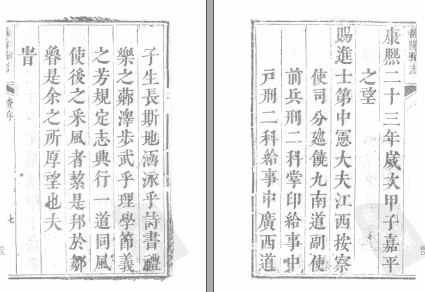 子生長斯地涵泳乎詩書禮
樂之藪澤步武乎理學節義
之芳規定志典行一道同風
使後之采風者絜是邦於鄒
魯是余之所厚望也夫
旹
序
七
康熙二十三年歲次甲子嘉平
之望
賜進士第中憲大夫江西按察
使司分巡饒九南道副使
前兵刑二科掌印給事中
戶刑二科給事中廣西道